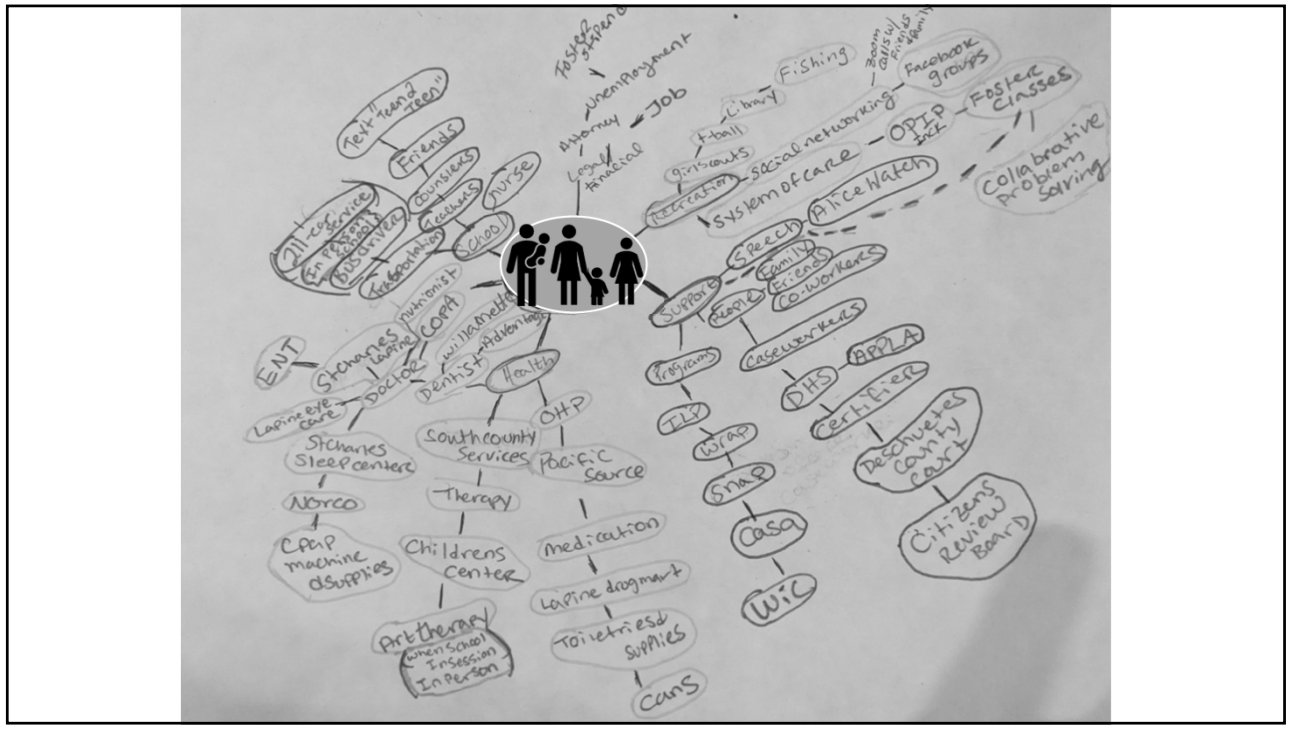 Foster
stipend
unemployment
Job
Attorney
Legal
finacial
Fishing
Library
t-ball
girlscouts
Recreation
Social networking
calls w/
Friends
Facebook
groups
System of care
OPIP
Foster
Classes
Collabrative
problem
solving
Speech
Alice Watch
Support
People
Family
Friends
Co-workers
Caseworkers
DHS
APPLA
Certifier
Deschutes
County
Court
Citizens
Review
Board
Programs
ILP
Wrap
Snap
Casa
WiC
Text "Teen2
Teen"
Friends
Counslers
Teachers
nurse
School
Transportation
Bus driver
In Person
School
211-car
service
nutrionist
COPA
Willamette
Advantage
Dentist
Doctor
St Charles
Lapine
ENT
Lapine eye
care
St Charles
Sleep center
Norco
Cpap
machine
&Supplies
Health
South county
Services
Therapy
Childrens
Center
Art therapy
When School
In Session
In Person
OHP
Pacific
Source
medication
Lapine drogmart
Toiletries&
supplies
Cans